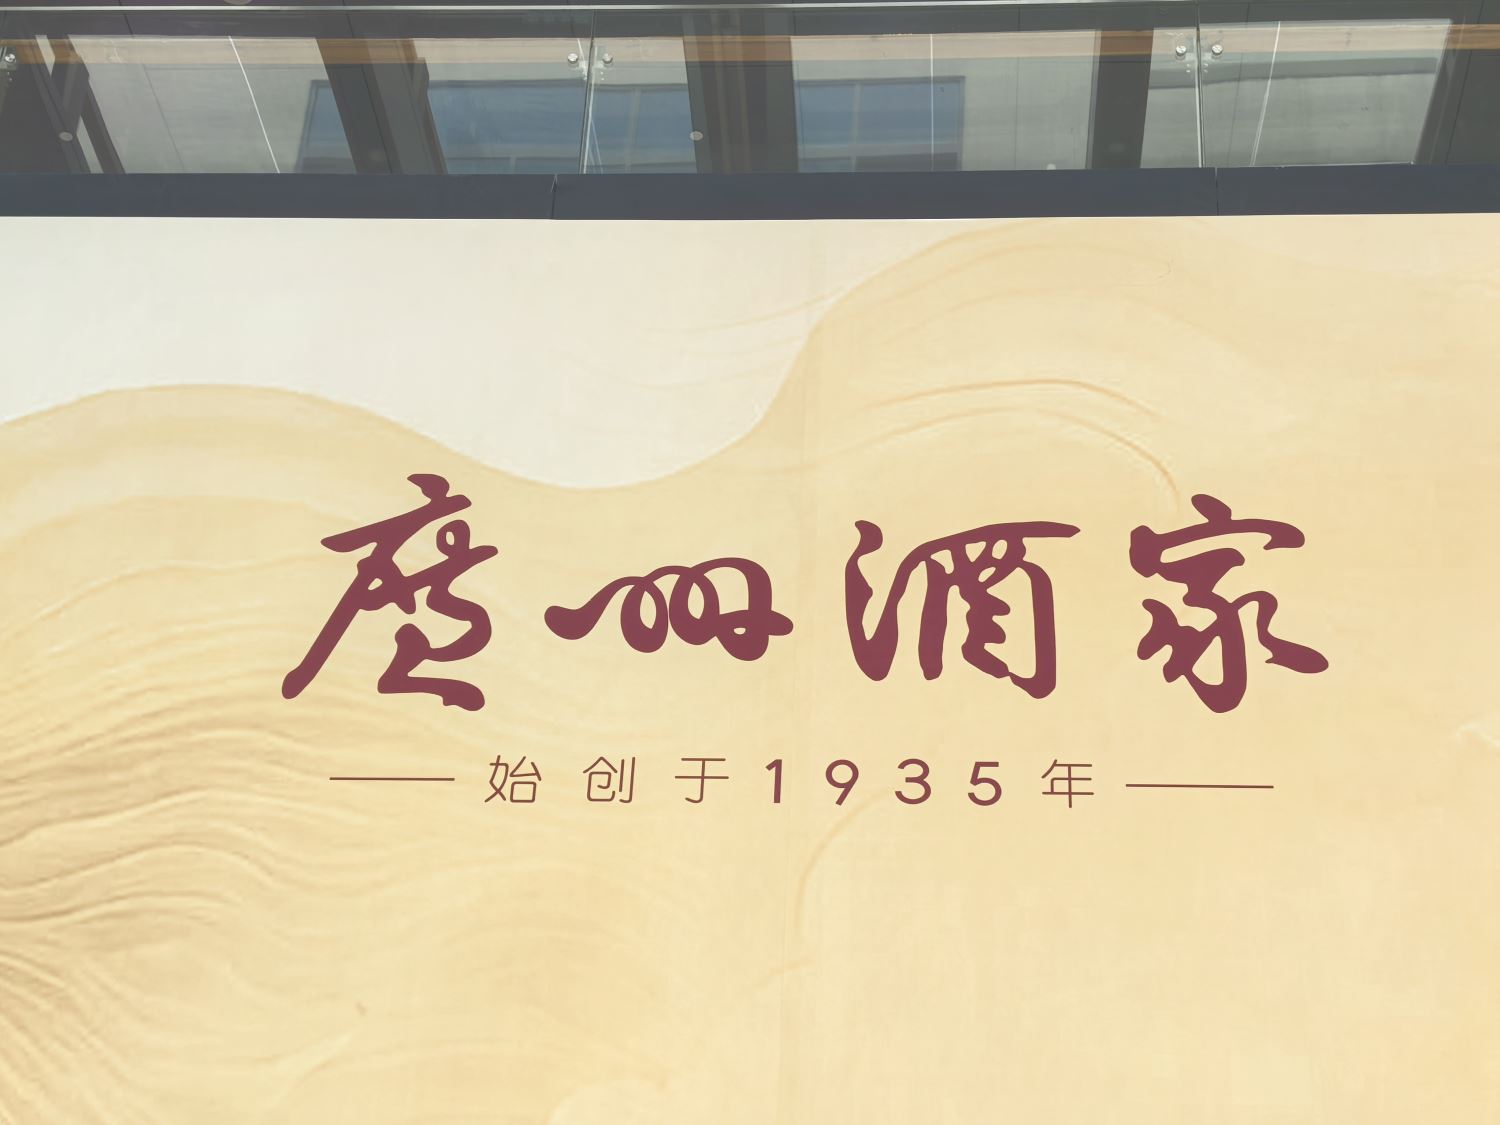 廣州酒家
始创于1935年